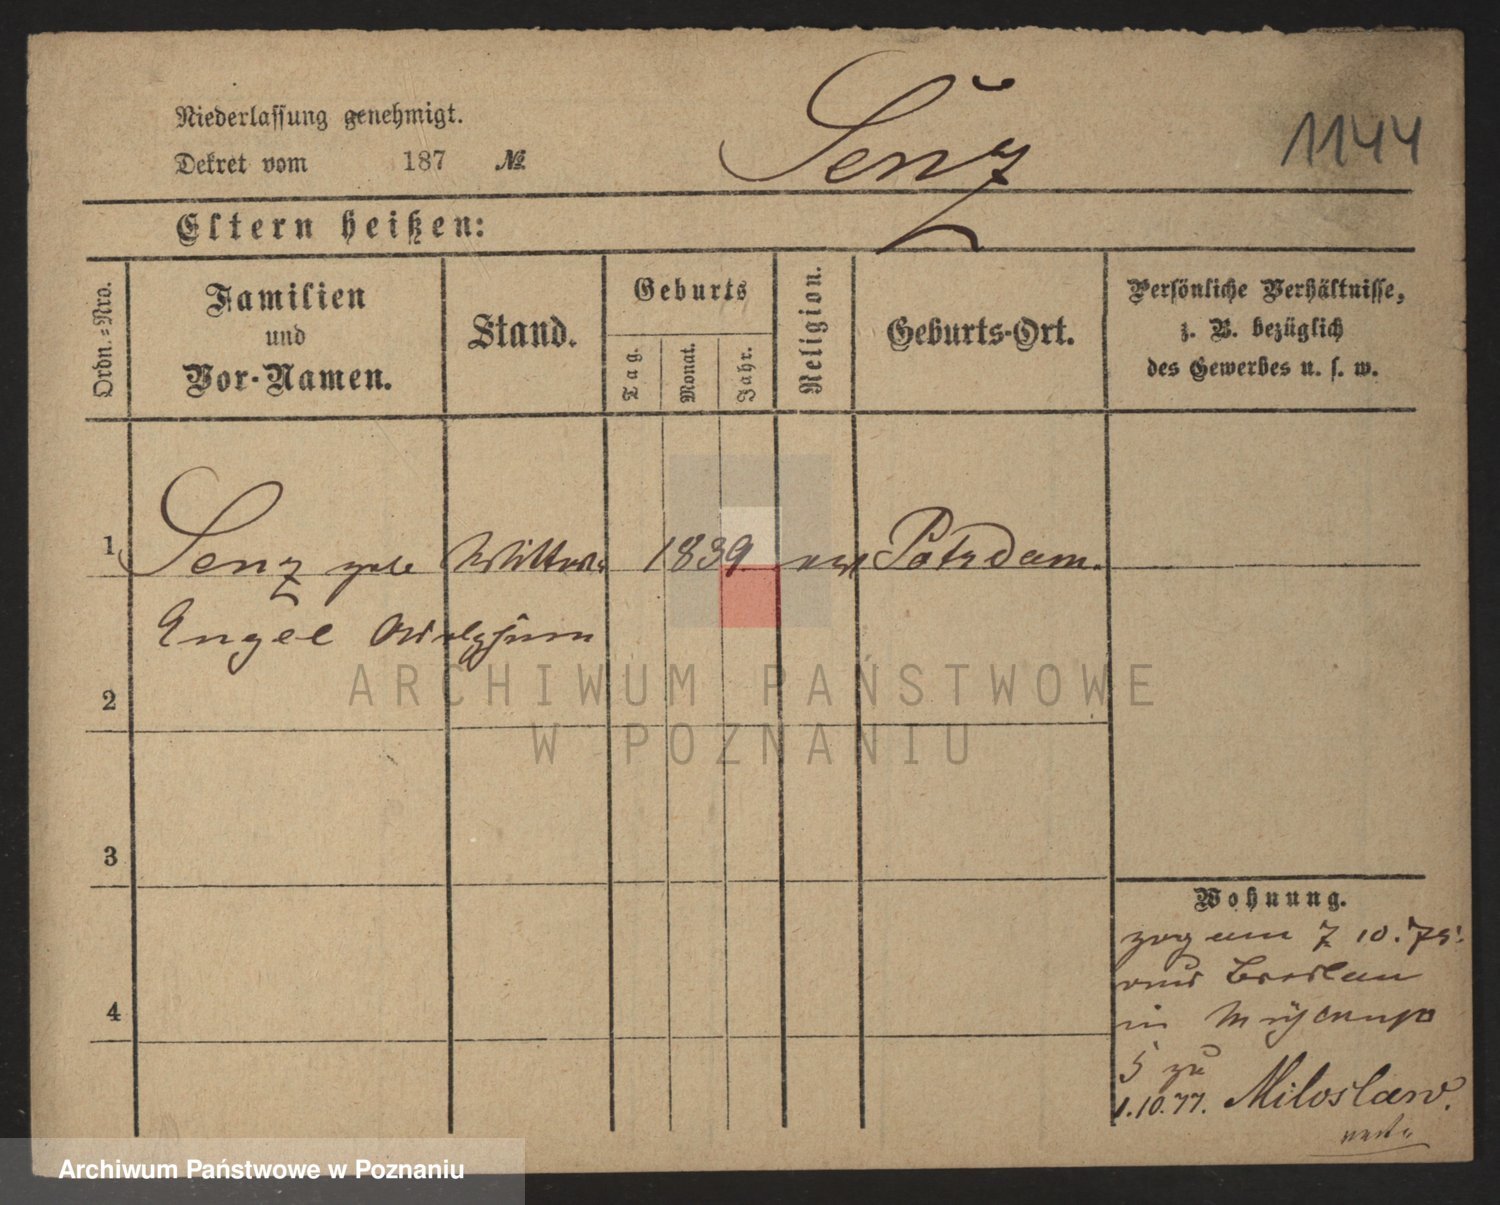 Niederlassung genehmigt.
Dekret vom 187 №
Senz
1144
Eltern heißen:
Ordn.-Nro.
Familien
und
Vor-Namen.
Stand.
Geburts
Tag.
Monat.
Jahr.
Religion.
Geburts-Ort.
Persönliche Verhältnisse,
z. B. bezüglich
des Gewerbes u. s. w.
1 Senz geb. Wittwe 1839. ev. Potsdam.
Engel
2
3
4
Wohnung.
zog am 7 10. 75.
aus Breslau
in
5 zu
1.10.77. Miloslaw.
ARCHIWUM PAŃSTWOWE
W POZNANIU
Archiwum Państwowe w Poznaniu